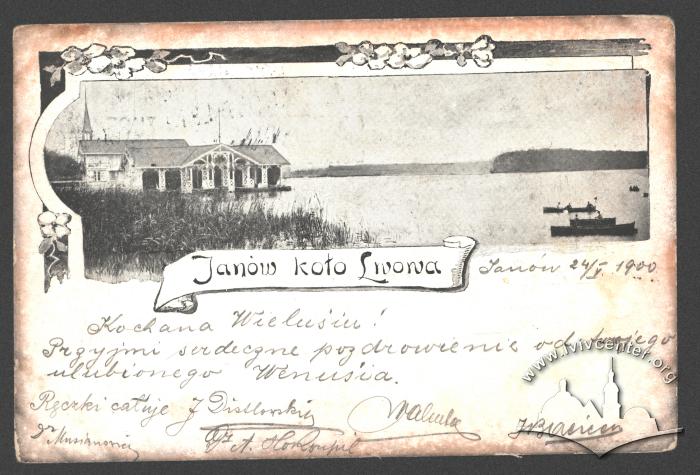 Janów koło Lwowa
Janów 24/V 1900
Kochana Wielusiu!
Przyjmi serdeczne pozdrowienie od twojego
ulubionego Wenusia.
Rączki całuje J
Dr
Dr A.
www.lvivcenter.org